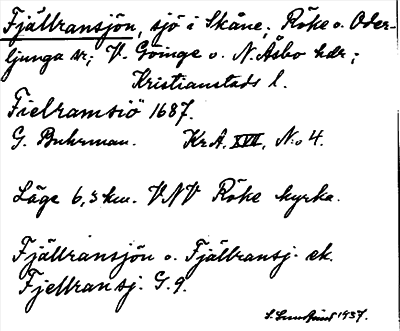 Fjällransjön, sjö i Skåne. Röke o. Oder-
ljunga sr; V. Göinge o. N. Åsbo hdr;
Kristianstads l.
Fielramsiö 1687.
G. Buhrman. Kr.A. XVII, N:o 4.
Läge 6,3 km. VNV Röke kyrka.
Fjällransjön o. Fjällransj. ek.
Fjellransj. G. 9.
1937.